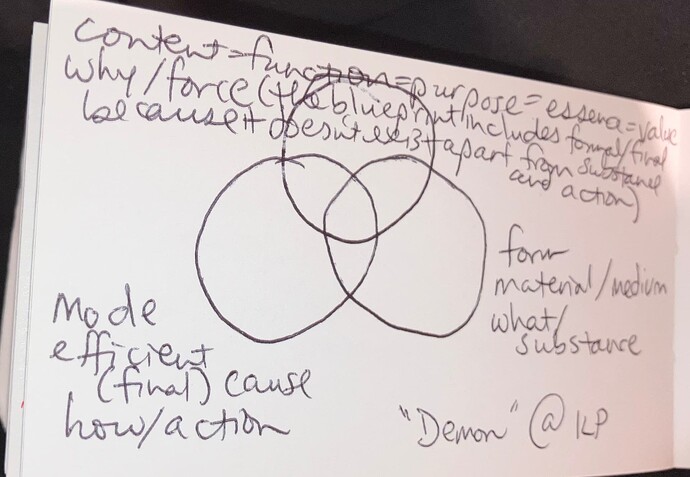 content=function=purpose=essence=value
why/force (the blueprint includes formal/final
because it doesn't exist apart from substance
and action)
form
material/medium
what/
substance
Mode
efficient
(final) cause
how/action
"Demon" @ KP